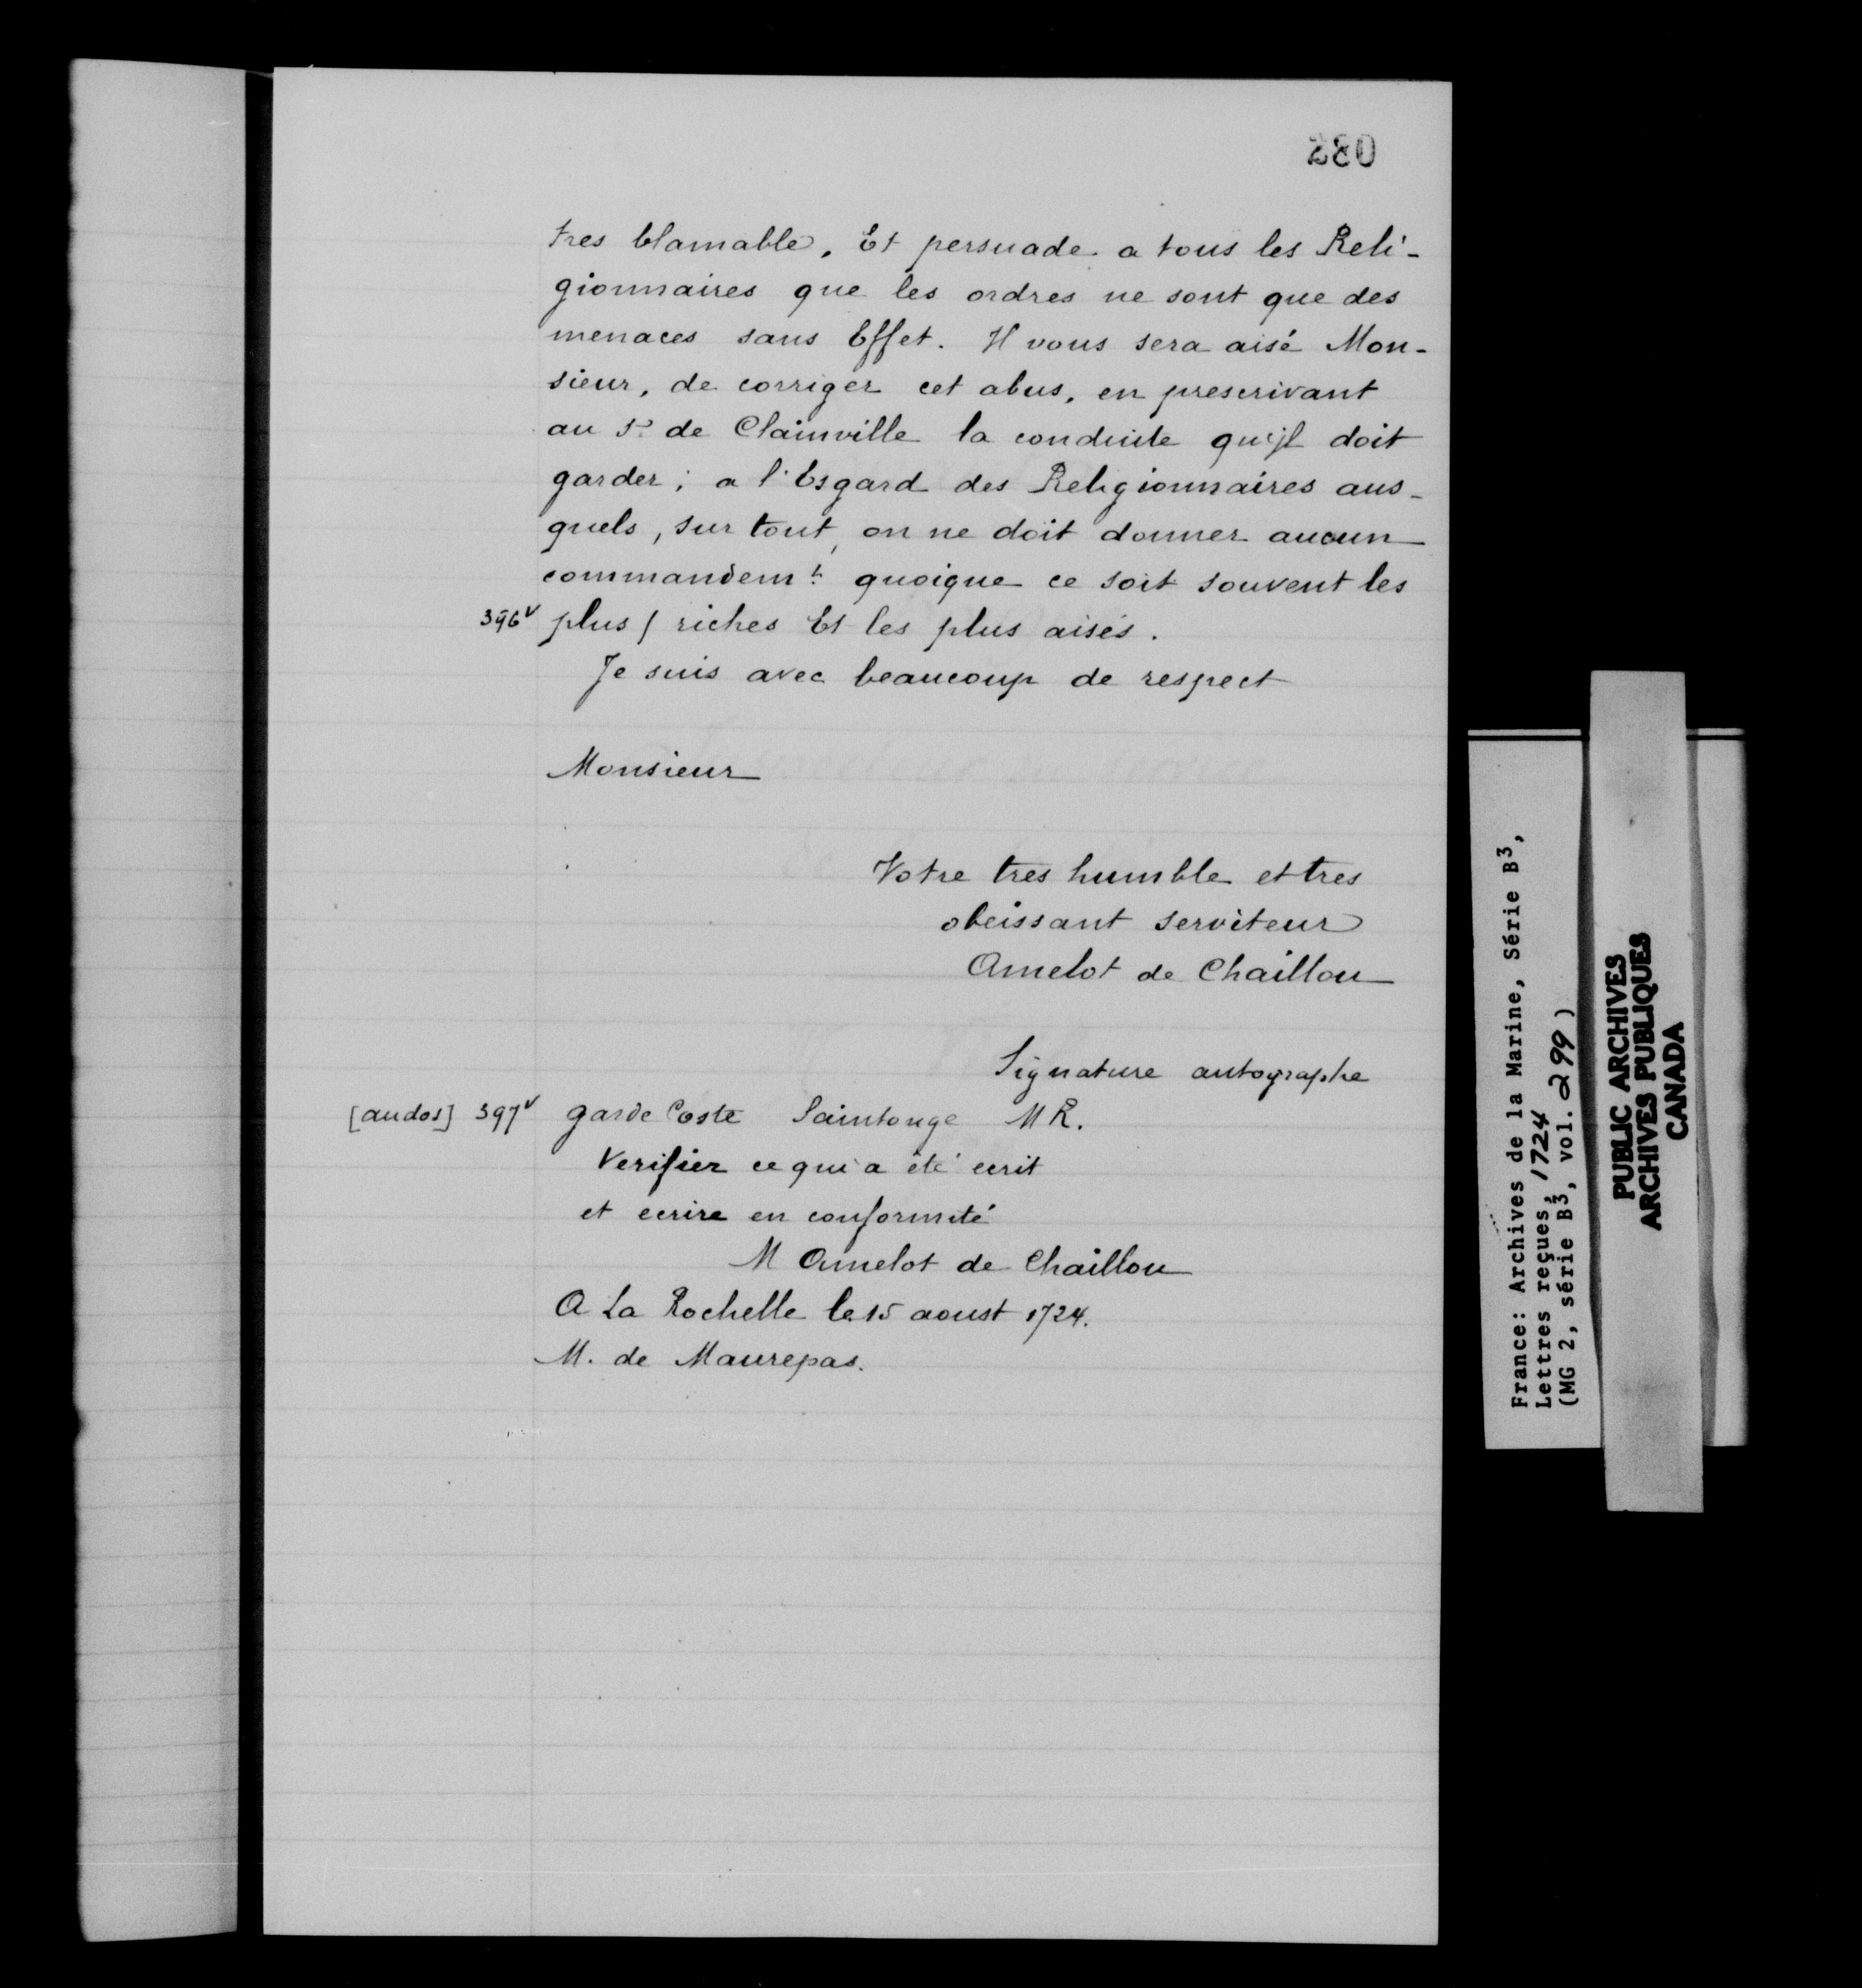 280
tres blamable, Et persuade a tous les Reli-
gionnaires que les ordres ne sont que des
menaces sans Effet. Il vous sera aisé Mon-
sieur, de corriger cet abus, en prescrivant
au Sr de Clainville la conduite qu'jl doit
garder; a l'Esgard des Religionnaires aus-
quels, sur tout, on ne doit donner aucun
commandemt quoique ce soit souvent les
396v plus / riches Et les plus aisés.
Je suis avec beaucoup de respect
Monsieur
Votre tres humble et tres
obeissant serviteur
Amelot de Chaillou
Signature autographe
[au dos] 397v garde Coste Saintonge MR.
Verifier ce qui a été ecrit
et ecrire en conformité
M Amelot de Chaillou
A La Rochelle le 15 aoust 1724.
M. de Maurepas.
France: Archives de la Marine, Série B3,
Lettres reçues, 1724
(MG 2, série B3, vol. 299)
PUBLIC ARCHIVES
ARCHIVES PUBLIQUES
CANADA